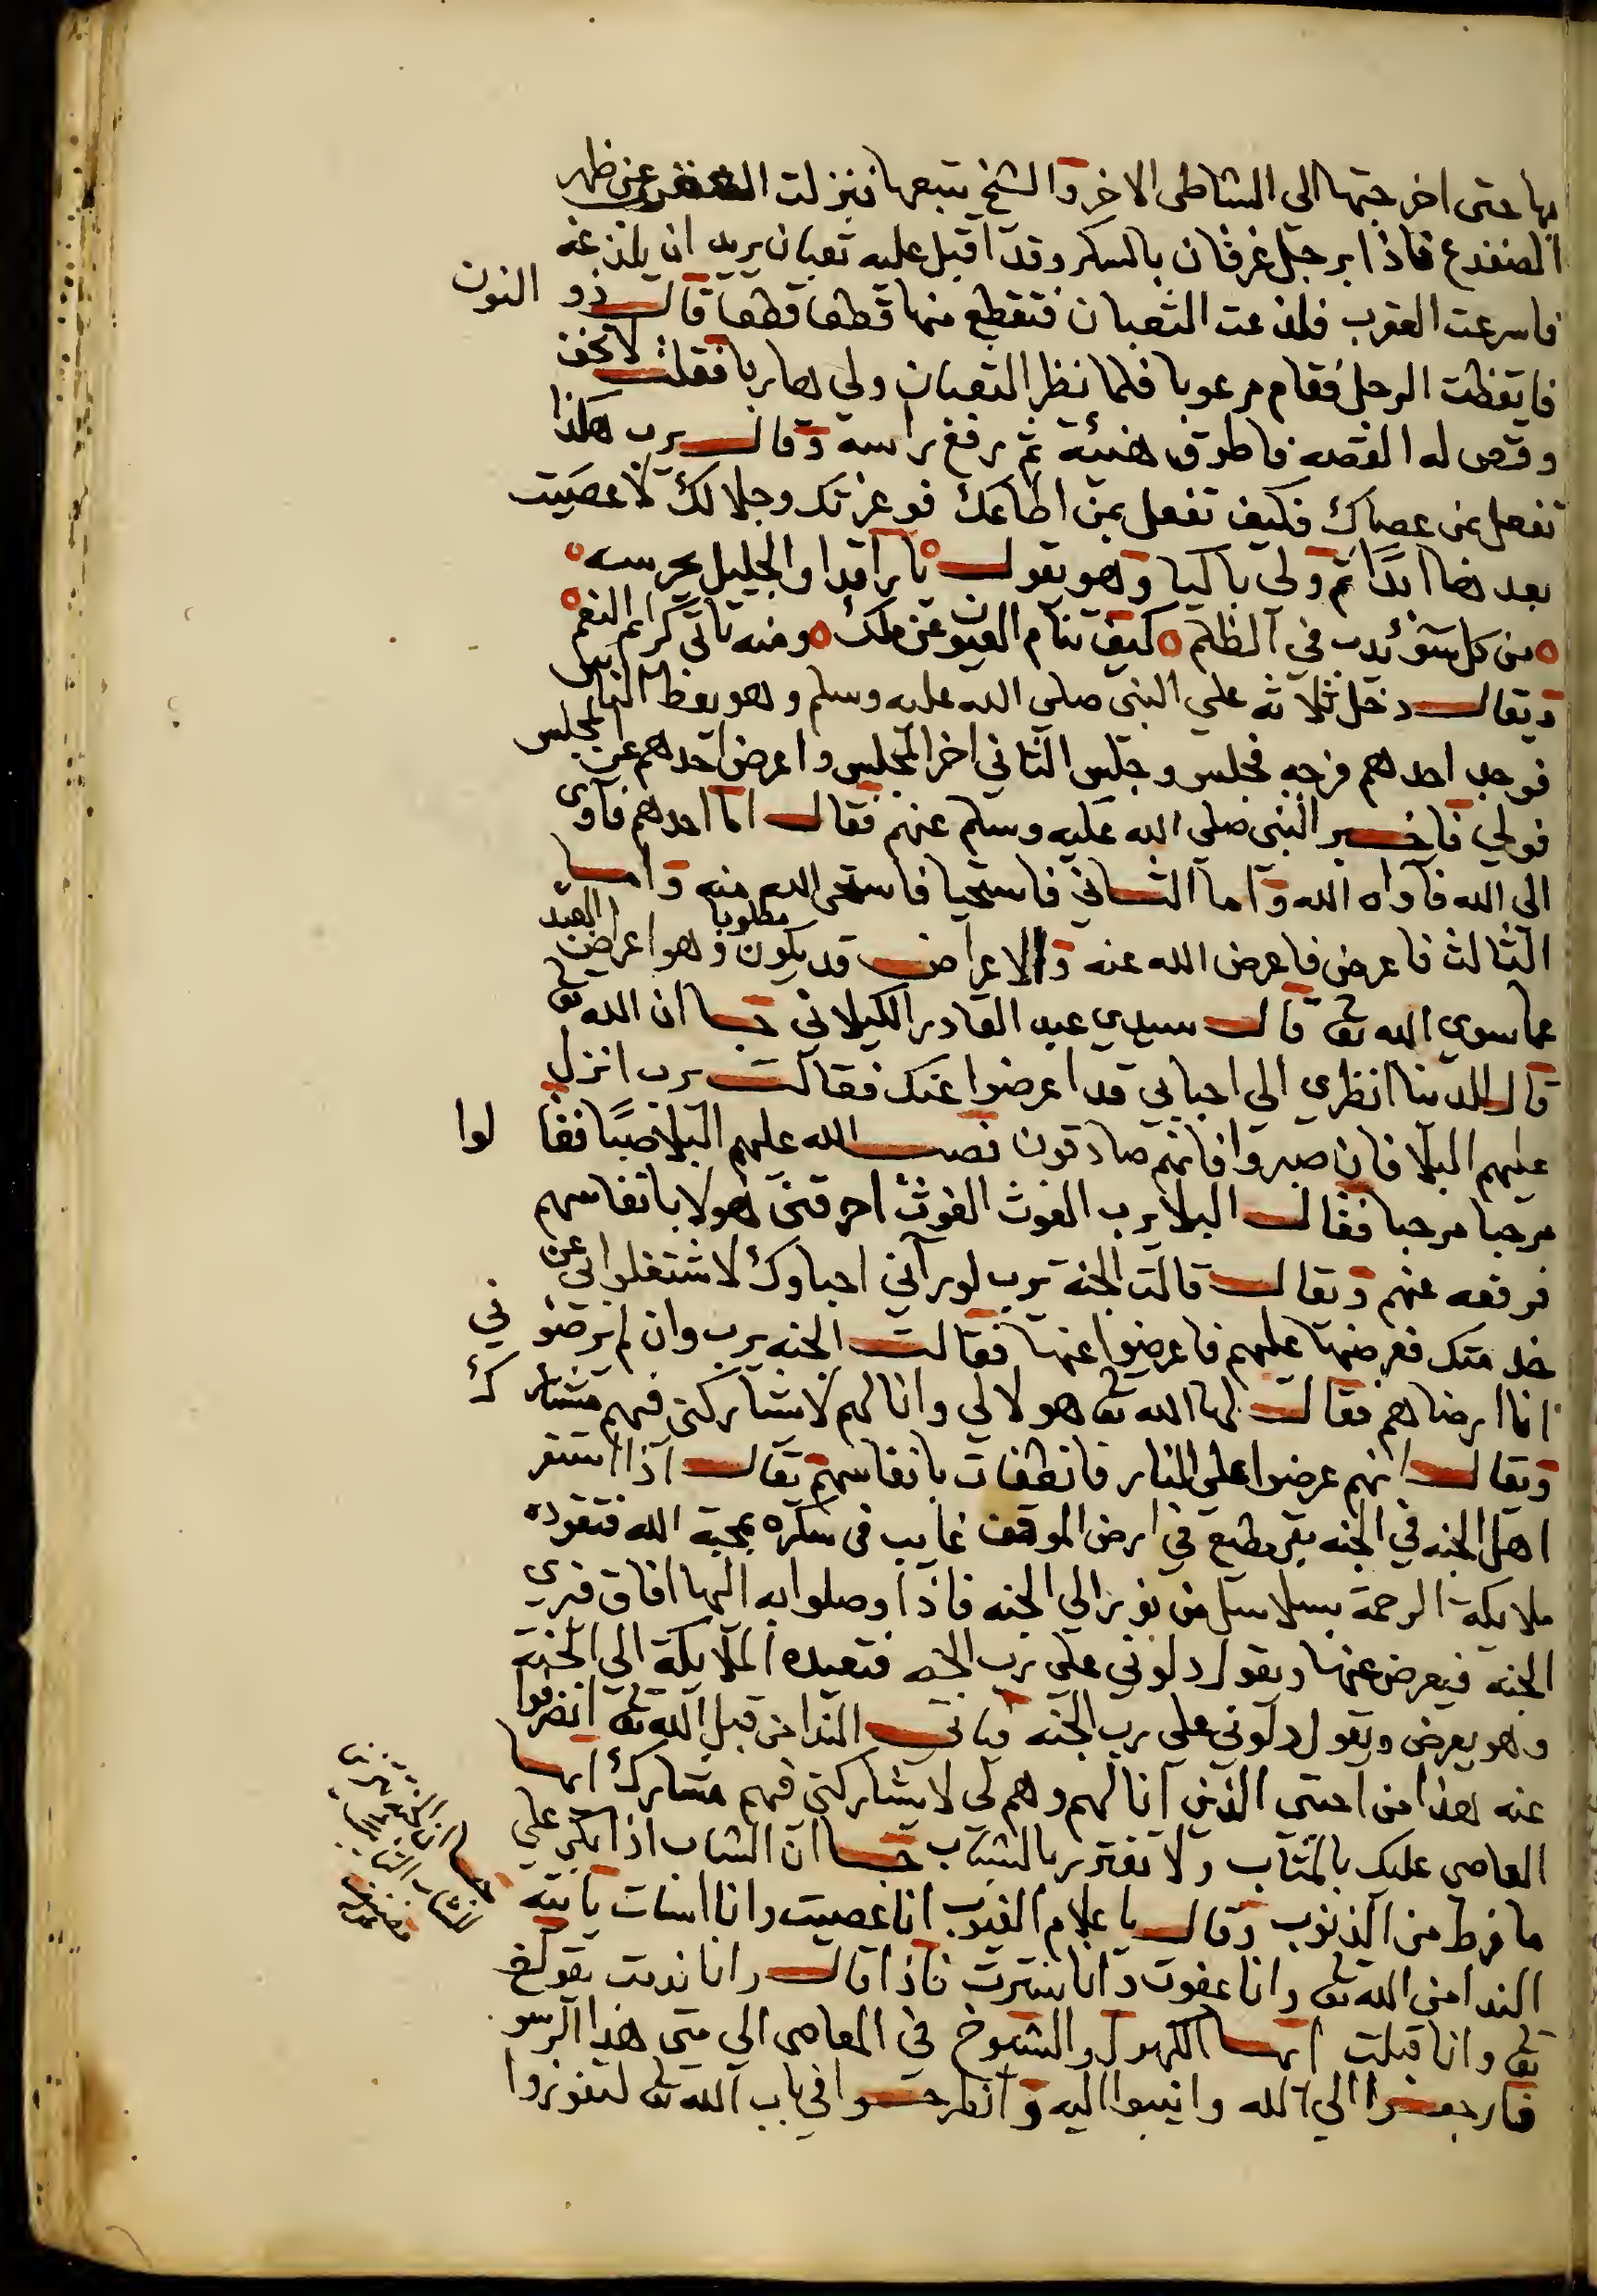 بها حتى اخرجتها الى الشاطى الاخر والشيخ يتبعها فنزلت العقرب عن ظهر
الضفدع فاذا برجل غرقان بالسكر وقد اقبل عليه ثعبان يريد ان يلذغه
فاسرعت العقرب فلذعت الثعبان فتقطع منها قطعا قطعا قال ذو النون
فايقظت الرجل فقام مرعوبا فلما نظر الثعبان ولى هاربا فقلت لا تخف
وقص له القصه فاطرق هنيئة ثم رفع راسه وقال يرب هكذا
تفعل بمن عصاك فكيف تفعل بمن اطاعك فوعزتك وجلالك لا عصيت
بعد هذا ابدا ثم ولى باكيا وهو يقول يا راقدا والجليل يحرسه
من كل سوء يدب في الظلم كيف تنام العيون عن ملك ومنه تاتي كرائم النعم
ويقال دخل ثلاثة علي النبي صلى الله عليه وسلم وهو يعظ الناس
فوجد احدهم فرجه فجلس وجلس الثاني اخر المجلس واعرض احدهم عن المجلس
فولي فاخبر النبي صلي الله عليه وسلم عنهم فقال اما احدهم فآوى
الى الله فآواه الله واما الثاني فاستحيا فاستحى الله منه واما
الثالث فاعرض فاعرض الله عنه والاعراض قد يكون مطلوبا وهو اعراض العبد
عما سوي الله تعالى قال سيدي عبد القادر الكيلاني حسا ان الله تعالى
قال للدنيا انظري الى احبابي قد اعرضوا عنك فقالت يرب انزل
عليهم البلا فان صبروا فانهم صادقون فصب الله عليهم البلا صبا فقالوا
مرحبا مرحبا فقال البلا يرب الغوث الغوث احرقني هولا بانفاسهم
فرفعه عنهم ويقال قالت الجنة يرب لو رآني احباوك لاشتغلوا بي عن
خدمتك فعرضها عليهم فاعرضوا عنها فقالت الجنه يرب وان لم يرضوني
انا ارضاهم فقالت لها الله تعالى هولا لي وانا لهم لا يشاركني فيهم مشارك
ويقال انهم عرضوا على النار فانطفات بانفاسهم يقال اذا استقر
اهل الجنه في الجنه بقي مطيع في ارض الموقف غايب في سكره بمحبة الله فتقوده
ملايكة الرحمة بسلاسل من نور الى الجنه فاذا وصلوا به اليها افاق فيري
الجنة فيعرض عنها ويقول دلوني على رب الجنه فتعيده الملايكة الي الجنة
وهو يعرض ويقول دلوني على رب الجنه فياتي الندا من قبل الله تعالى انصرفوا
عنه هذا من احبتي الذين انا لهم وهم لي لا يشاركني فيهم مشارك ايها
العاصي عليك بالمتاب ولا تغترر بالشباب حسا ان الشاب اذا بكى علي
ما فرط من الذنوب وقال يا علام الغيوب انا عصيت وانا اسات ياتيه
الندا من الله تعالى وانا عفوت وانا سترت فاذا قال وانا ندمت يقول
تعالى وانا قبلت ايها الكهول والشيوخ في المعاصي الى متى هذا الرسو
فارجعوا الي الله وانيبوا اليه وانطرحوا في باب الله تعالى لتفوزوا